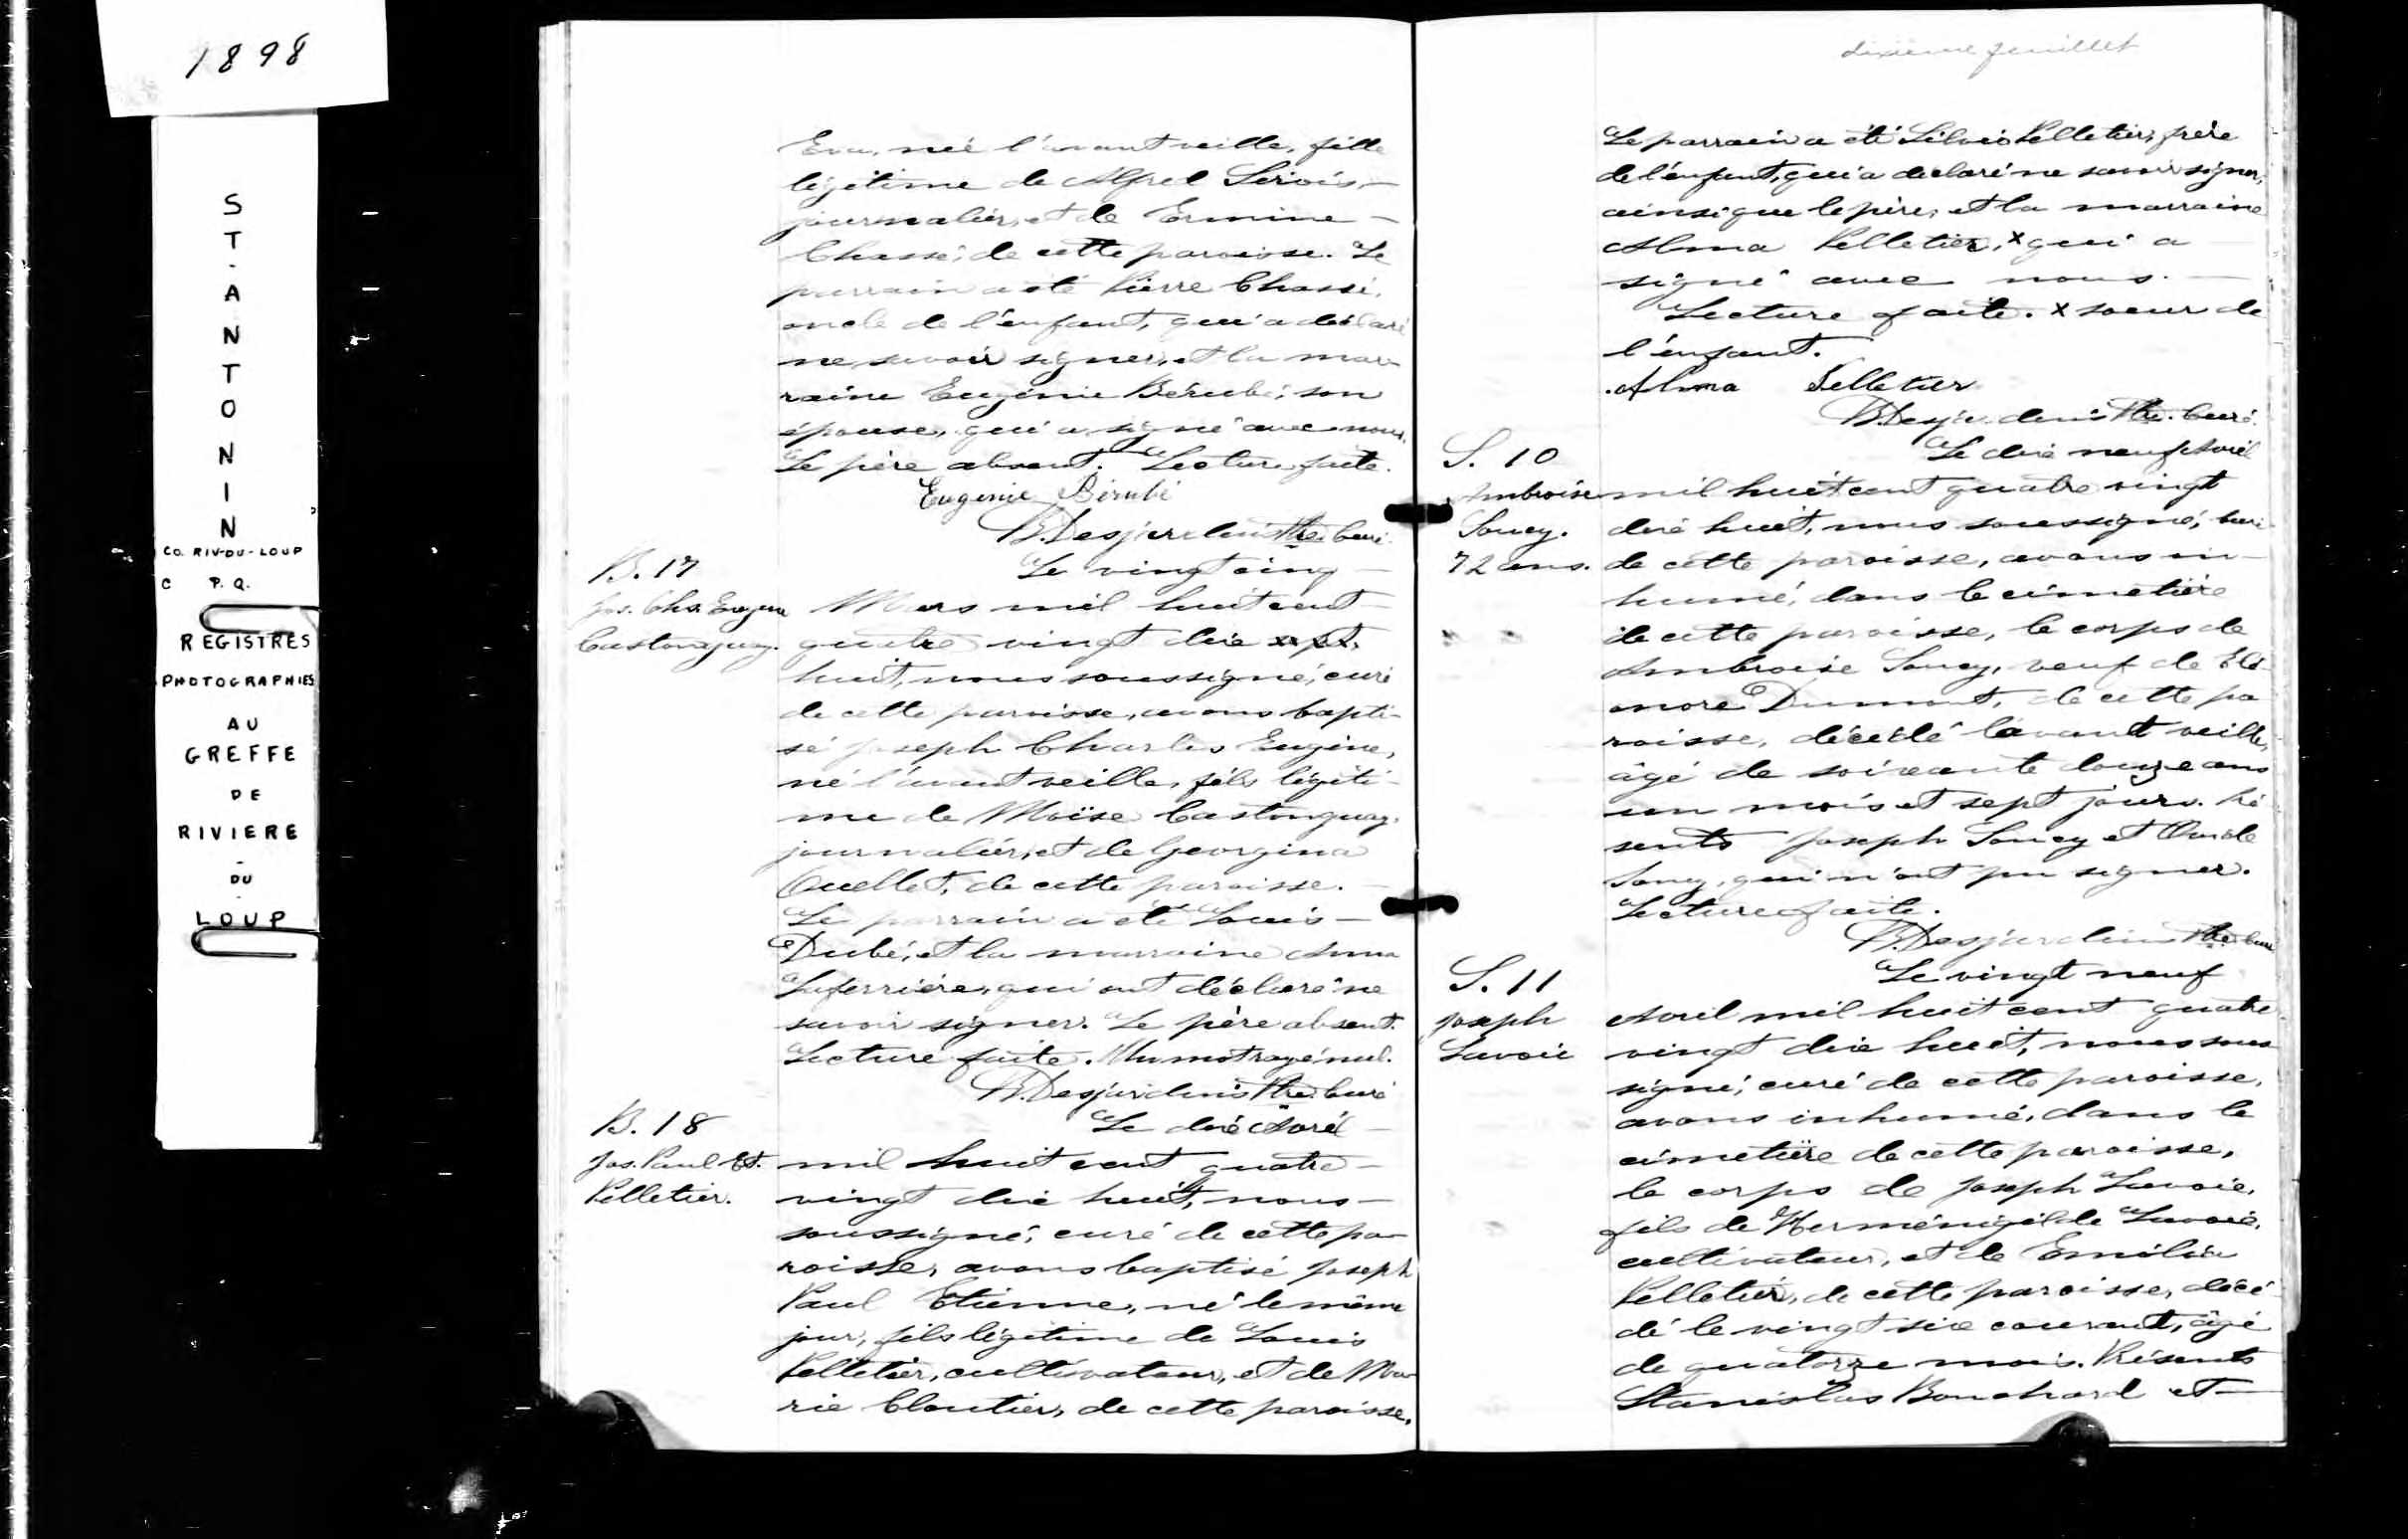 1898
ST-ANTONIN
CO. RIV-DU-LOUP
C P.Q.
REGISTRES
PHOTOGRAPHIES
AU
GREFFE
DE
RIVIERE
-
DU
-
LOUP
Eva, née l'avant veille, fille
légitime de Alfred Sirois,
journalier, et de Ermine
Chassé, de cette paroisse. Le
parrain a été Pierre Chassé,
oncle de l'enfant, qui a déclaré
ne savoir signer, et la mar-
raine Eugénie Bérubé, son
épouse, qui a signé avec nous.
Le père absent. Lecture faite.
Eugenie Bérubé
B. Desjardins Ptre. Curé
B. 17
Jos. Chs. Eugene
Castonguay.
Le vingt cinq
Mars mil huit cent
quatre vingt dix sept
huit, nous soussigné, curé
de cette paroisse, avons bapti-
sé Joseph Charles Eugène,
né l'avant veille, fils légiti-
me de Moïse Castonguay,
journalier, et de Georgina
Ouellet, de cette paroisse.
Le parrain a été Louis
Dubé, et la marraine Anna
Laferrière, qui ont déclaré ne
savoir signer. Le père absent.
Lecture faite. Un mot rayé nul.
B. Desjardins Ptre. Curé
B. 18
Jos. Paul Et.
Pelletier.
Le dix Avril
mil huit cent quatre
vingt dix huit, nous
soussigné, curé de cette pa-
roisse, avons baptisé Joseph
Paul Etienne, né le même
jour, fils légitime de Louis
Pelletier, cultivateur, et de Ma-
rie Cloutier, de cette paroisse.
dixième feuillet
Le parrain a été Silvio Pelletier, frère
de l'enfant, qui a declaré ne savoir signer,
ainsi que le père, et la marraine
Alma Pelletier, x qui a
signé avec nous.
Lecture faite. x soeur de
l'enfant.
Alma Pelletier
B. Desjardins Ptre. Curé.
S. 10
Ambroise
Soucy.
72 ans.
Le dix neuf Avril
mil huit cent quatre vingt
dix huit, nous soussigné, curé
de cette paroisse, avons in-
humé, dans le cimetière
de cette paroisse, le corps de
Ambroise Soucy, veuf de Elé-
onore Dumont, de cette pa
roisse, décédé l'avant veille,
âgé de soixante douze ans
un mois et sept jours. Pré-
sents Joseph Soucy et
Soucy, qui n'ont pu signer.
Lecture faite.
B. Desjardins Ptre. Curé
S. 11
Joseph
Lavoie
Le vingt neuf
Avril mil huit cent quatre
vingt dix huit, nous sous
signé, curé de cette paroisse,
avons inhumé, dans le
cimetière de cette paroisse,
le corps de Joseph Lavoie,
fils de Herménégilde Lavoie,
cultivateur, et de Emélie
Pelletier, de cette paroisse, décé-
dé le vingt six courant, âgé
de quatorze mois. Présents
Stanislas Bouchard et